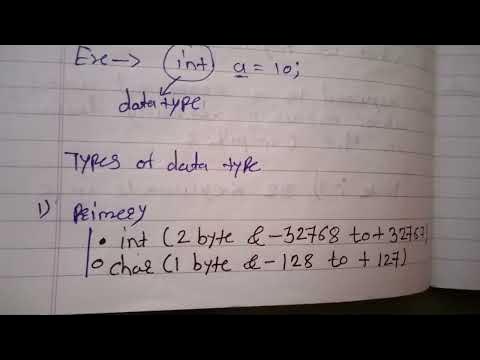 Exe → int a = 10;
data type
Types of data type
1) Primery
• int (2 byte & -32768 to +32767)
• char (1 byte & -128 to +127)